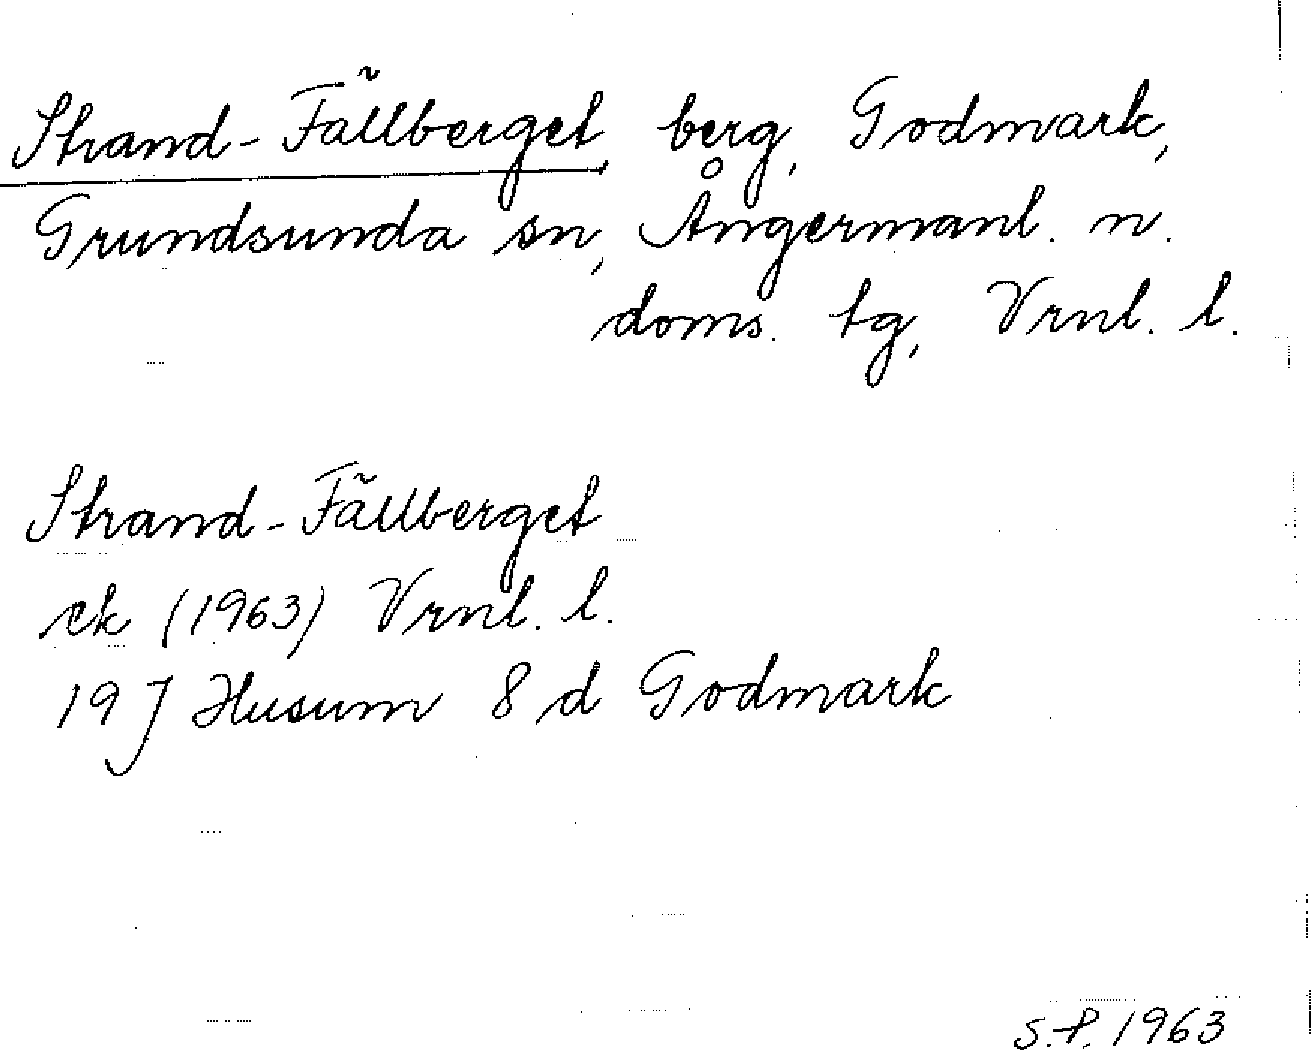 Strand-Fällberget, berg, Godmark,
Grundsunda sn, Ångermanl. n.
doms. tg, Vrnl. l.
Strand-Fällberget
ek (1963) Vrnl. l.
19 J Husum 8 d Godmark
S.P. 1963